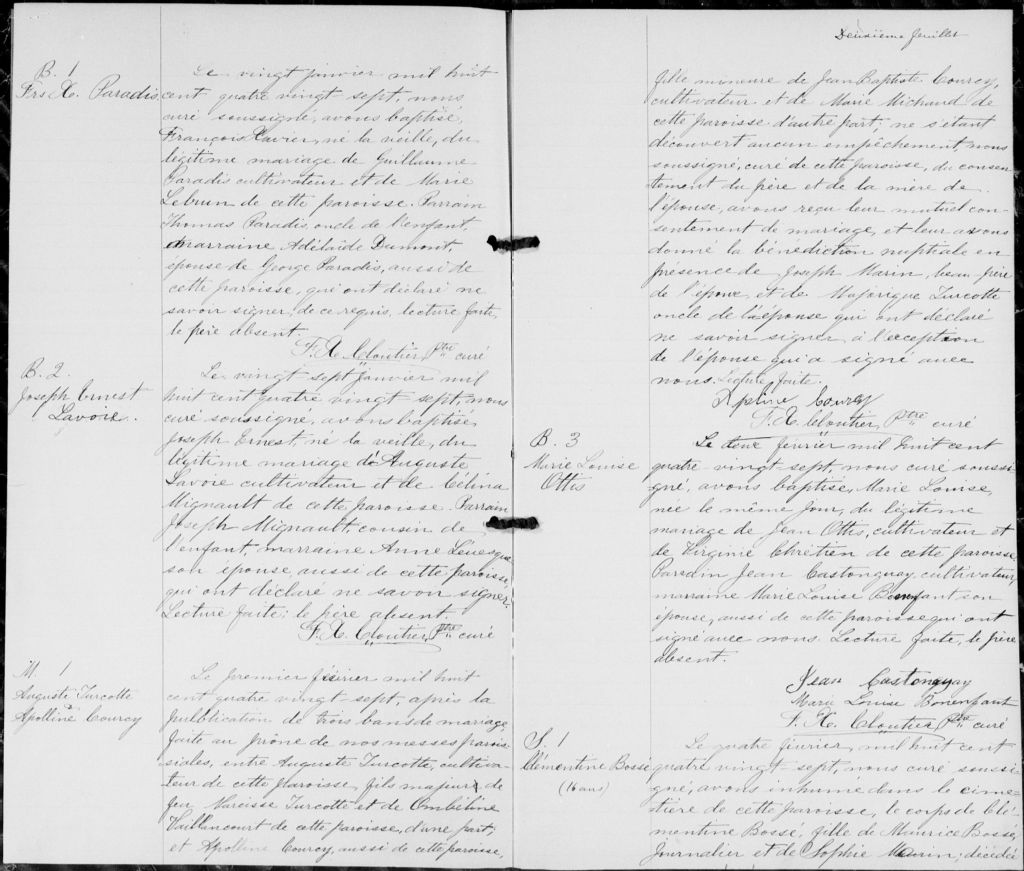 B. 1
Frs X. Paradis
Le vingt janvier mil huit
cent quatre vingt sept, nous
curé soussigné, avons baptisé
François Xavier, né la veille, du
légitime mariage de Guillaume
Paradis cultivateur et de Marie
Lebrun de cette paroisse. Parrain
Thomas Paradis, oncle de l'enfant,
marraine Adélaide Dumont,
épouse de George Paradis, aussi de
cette paroisse, qui ont déclaré ne
savoir signer, de ce requis, lecture faite,
le père absent.
F. X. Cloutier Ptre curé
B. 2
Joseph Ernest
Lavoie.
Le vingt sept janvier mil
huit cent quatre vingt sept, nous
curé soussigné, avons baptisé
Joseph Ernest, né la veille, du
légitime mariage d'Auguste
Lavoie cultivateur et de Célina
Mignault de cette paroisse. Parrain
Joseph Mignault, cousin de
l'enfant, marraine Anne Lévesque
son épouse, aussi de cette paroisse,
qui ont déclaré ne savoir signer.
Lecture faite; le père absent.
F. X. Cloutier Ptre curé
M. 1
Auguste Turcotte
Apolline Courcy
Le premier février mil huit
cent quatre vingt sept, après la
publication de trois bans de mariage,
faite au prône de nos messes parois-
siales, entre Auguste Turcotte, cultiva-
teur de cette paroisse, fils majeur de
feu Narcisse Turcotte et de Ombéline
Vaillancourt de cette paroisse, d'une part;
et Apolline Courcy, aussi de cette paroisse,
Deuxième feuillet
fille mineure de Jean Baptiste Courcy,
cultivateur et de Marie Michaud de
cette paroisse d'autre part; ne s'étant
découvert aucun empêchement, nous
soussigné, curé de cette paroisse, du consen-
tement du père et de la mère de
l'épouse, avons reçu leur mutuel con-
sentement de mariage, et leur avons
donné la bénédiction nuptiale en
présence de Joseph Marin, beau père
de l'époux, et de Majorique Turcotte
oncle de l'épouse qui ont déclaré
ne savoir signer, à l'exception
de l'épouse qui a signé avec
nous. Lecture faite.
Apoline Courcy
F. X. Cloutier, Ptre curé
B. 3
Marie Louise
Ottis
Le deux février mil huit cent
quatre-vingt-sept, nous curé soussi-
gné, avons baptisé, Marie Louise,
née le même jour, du légitime
mariage de Jean Ottis, cultivateur et
de Virginie Chrétien de cette paroisse.
Parrain Jean Castonguay cultivateur,
marraine Marie Louise Bonenfant son
épouse, aussi de cette paroisse qui ont
signé avec nous. Lecture faite, le père
absent.
Jean Castonguay
Marie Louise Bonenfant
F. X. Cloutier Ptre curé
S. 1
Clémentine Bossé
(16 ans)
Le quatre février, mil huit cent
quatre vingt-sept, nous curé soussi-
gné, avons inhumé dans le cime-
tière de cette paroisse, le corps de Clé-
mentine Bossé, fille de Maurice Bossé,
Journalier et de Sophie Morin, décédée